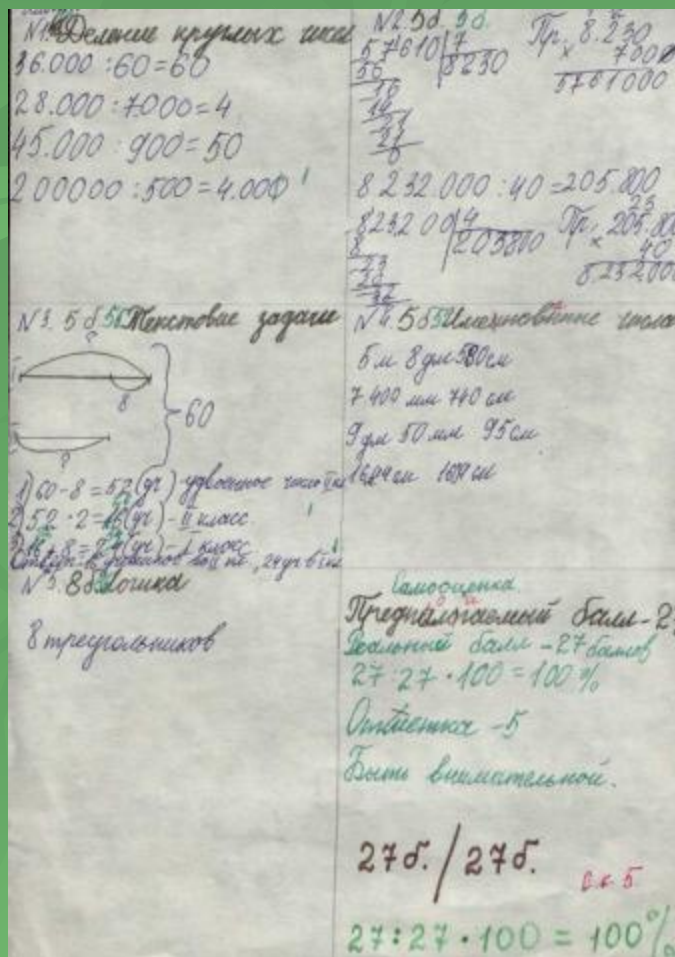 Деление круглых чисел
36.000 : 60 = 60
28.000 : 7000 = 4
45.000 : 900 = 50
200000 : 500 = 4.000
N2. 5б. 5б.
57610 | 7
56 8230
16
14
21
21
0
Пр. 8.230
× 7000
5761000
8232.000 : 40 = 205.800
823200 | 4
8 205800
23
20
32
Пр. 205.800
× 40
8.232.000
N3. 5б 5б Текстовые задачи
?
8
60
?
1) 60 - 8 = 52 (уч) удвоенное число II кл
2) 52 : 2 = (уч) - II класс
+ 8 = (уч) - I класс
N5. 8б Логика
8 треугольников
N4. 5б 5б Именованные числа
5м 8дм 580см
7.400 мм 740 см
9дм 50мм 95см
Самооценка.
Предполагаемый балл - 27
Реальный балл - 27 баллов
27 : 27 · 100 = 100 %
Отметка - 5
Быть внимательной.
27б. / 27б.
27 : 27 · 100 = 100%